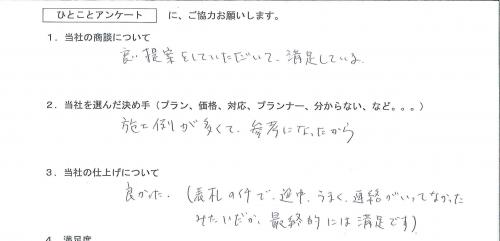 ひとことアンケート に、ご協力お願いします。
１．当社の商談について
良い提案をしていただいて、満足している。
２．当社を選んだ決め手（プラン、価格、対応、プランナー、分からない、など。。。）
施工例が多くて、参考になったから
３．当社の仕上げについて
良かった．（表札の件で、途中、うまく、連絡がいってなかった
みたいだが、最終的には満足です）
４．満足度